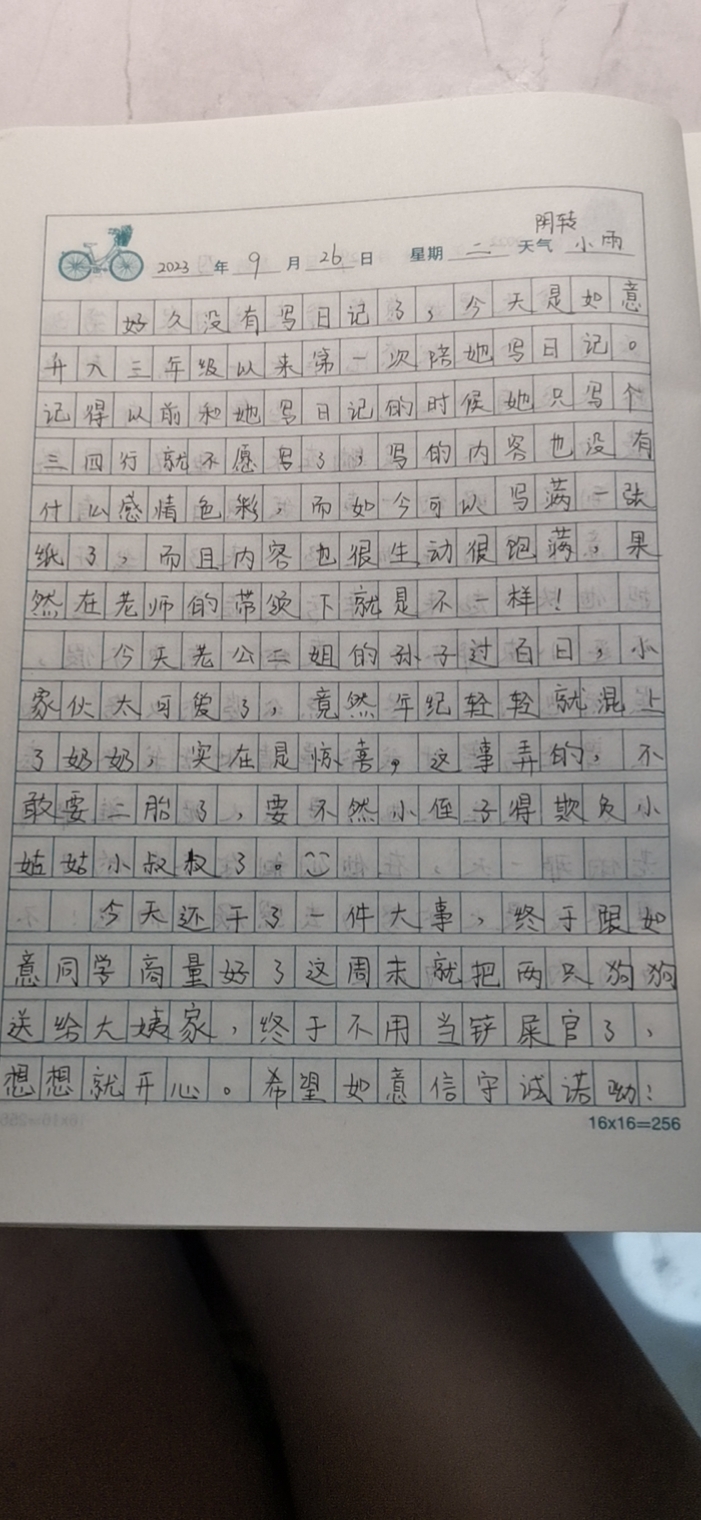 2023 年 9 月 26 日 星期 二 天气 阴转小雨
好久没有写日记了，今天是如意
升入三年级以来第一次陪她写日记。
记得以前和她写日记的时候她只写个
三四行就不愿写了，写的内容也没有
什么感情色彩，而如今可以写满一张
纸了，而且内容也很生动很饱满，果
然在老师的带领下就是不一样！
今天老公二姐的孙子过百日，小
家伙太可爱了，竟然年纪轻轻就混上
了奶奶，实在是惊喜，这事弄的，不
敢要二胎了，要不然小侄子得欺负小
姑姑小叔叔了。
今天还干了一件大事，终于跟如
意同学商量好了这周末就把两只狗狗
送给大姨家，终于不用当铲屎官了，
想想就开心。希望如意信守诚诺呦！
16x16=256